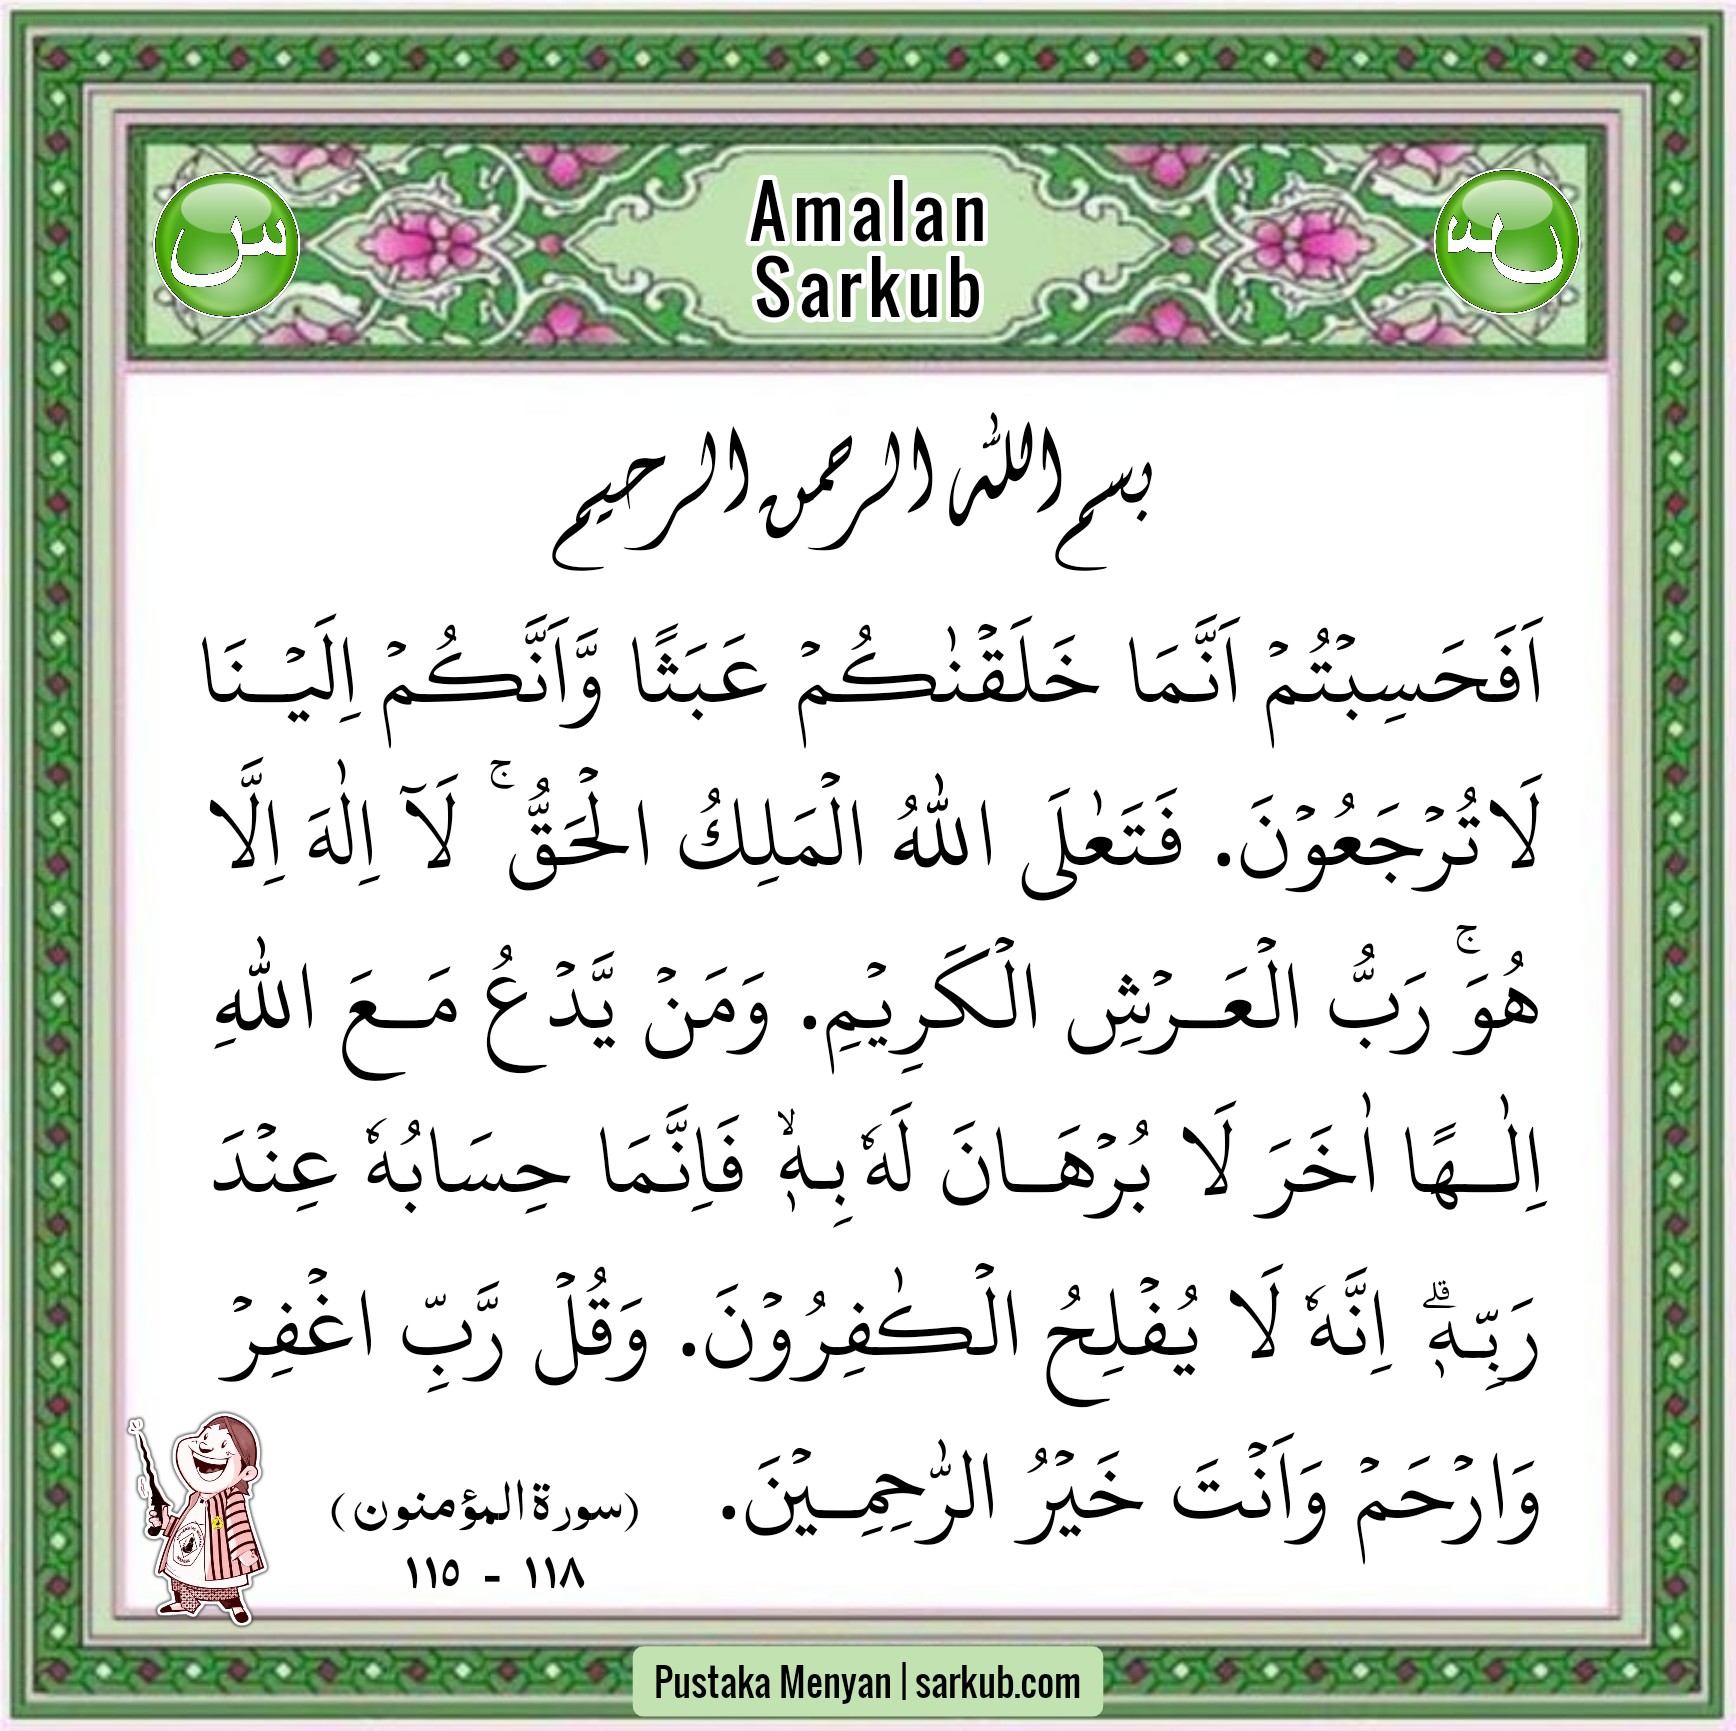 Amalan
Sarkub
س
س
بسم الله الرحمن الرحيم
اَفَحَسِبْتُمْ اَنَّمَا خَلَقْنٰكُمْ عَبَثًا وَّاَنَّكُمْ اِلَيْنَا
لَا تُرْجَعُوْنَ. فَتَعٰلَى اللّٰهُ الْمَلِكُ الْحَقُّ ۚ لَآ اِلٰهَ اِلَّا
هُوَۚ رَبُّ الْعَرْشِ الْكَرِيْمِ. وَمَنْ يَّدْعُ مَعَ اللّٰهِ
اِلٰهًا اٰخَرَ لَا بُرْهَانَ لَهٗ بِهٖۙ فَاِنَّمَا حِسَابُهٗ عِنْدَ
رَبِّهٖۗ اِنَّهٗ لَا يُفْلِحُ الْكٰفِرُوْنَ. وَقُلْ رَّبِّ اغْفِرْ
وَارْحَمْ وَاَنْتَ خَيْرُ الرّٰحِمِيْنَ. (سورة المؤمنون)
١١٥ - ١١٨
Pustaka Menyan | sarkub.com